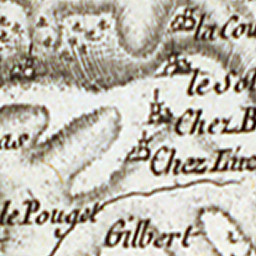 la Cou
le Sol
Chez B
as
Chez Luc
le Pouget
Gilbert